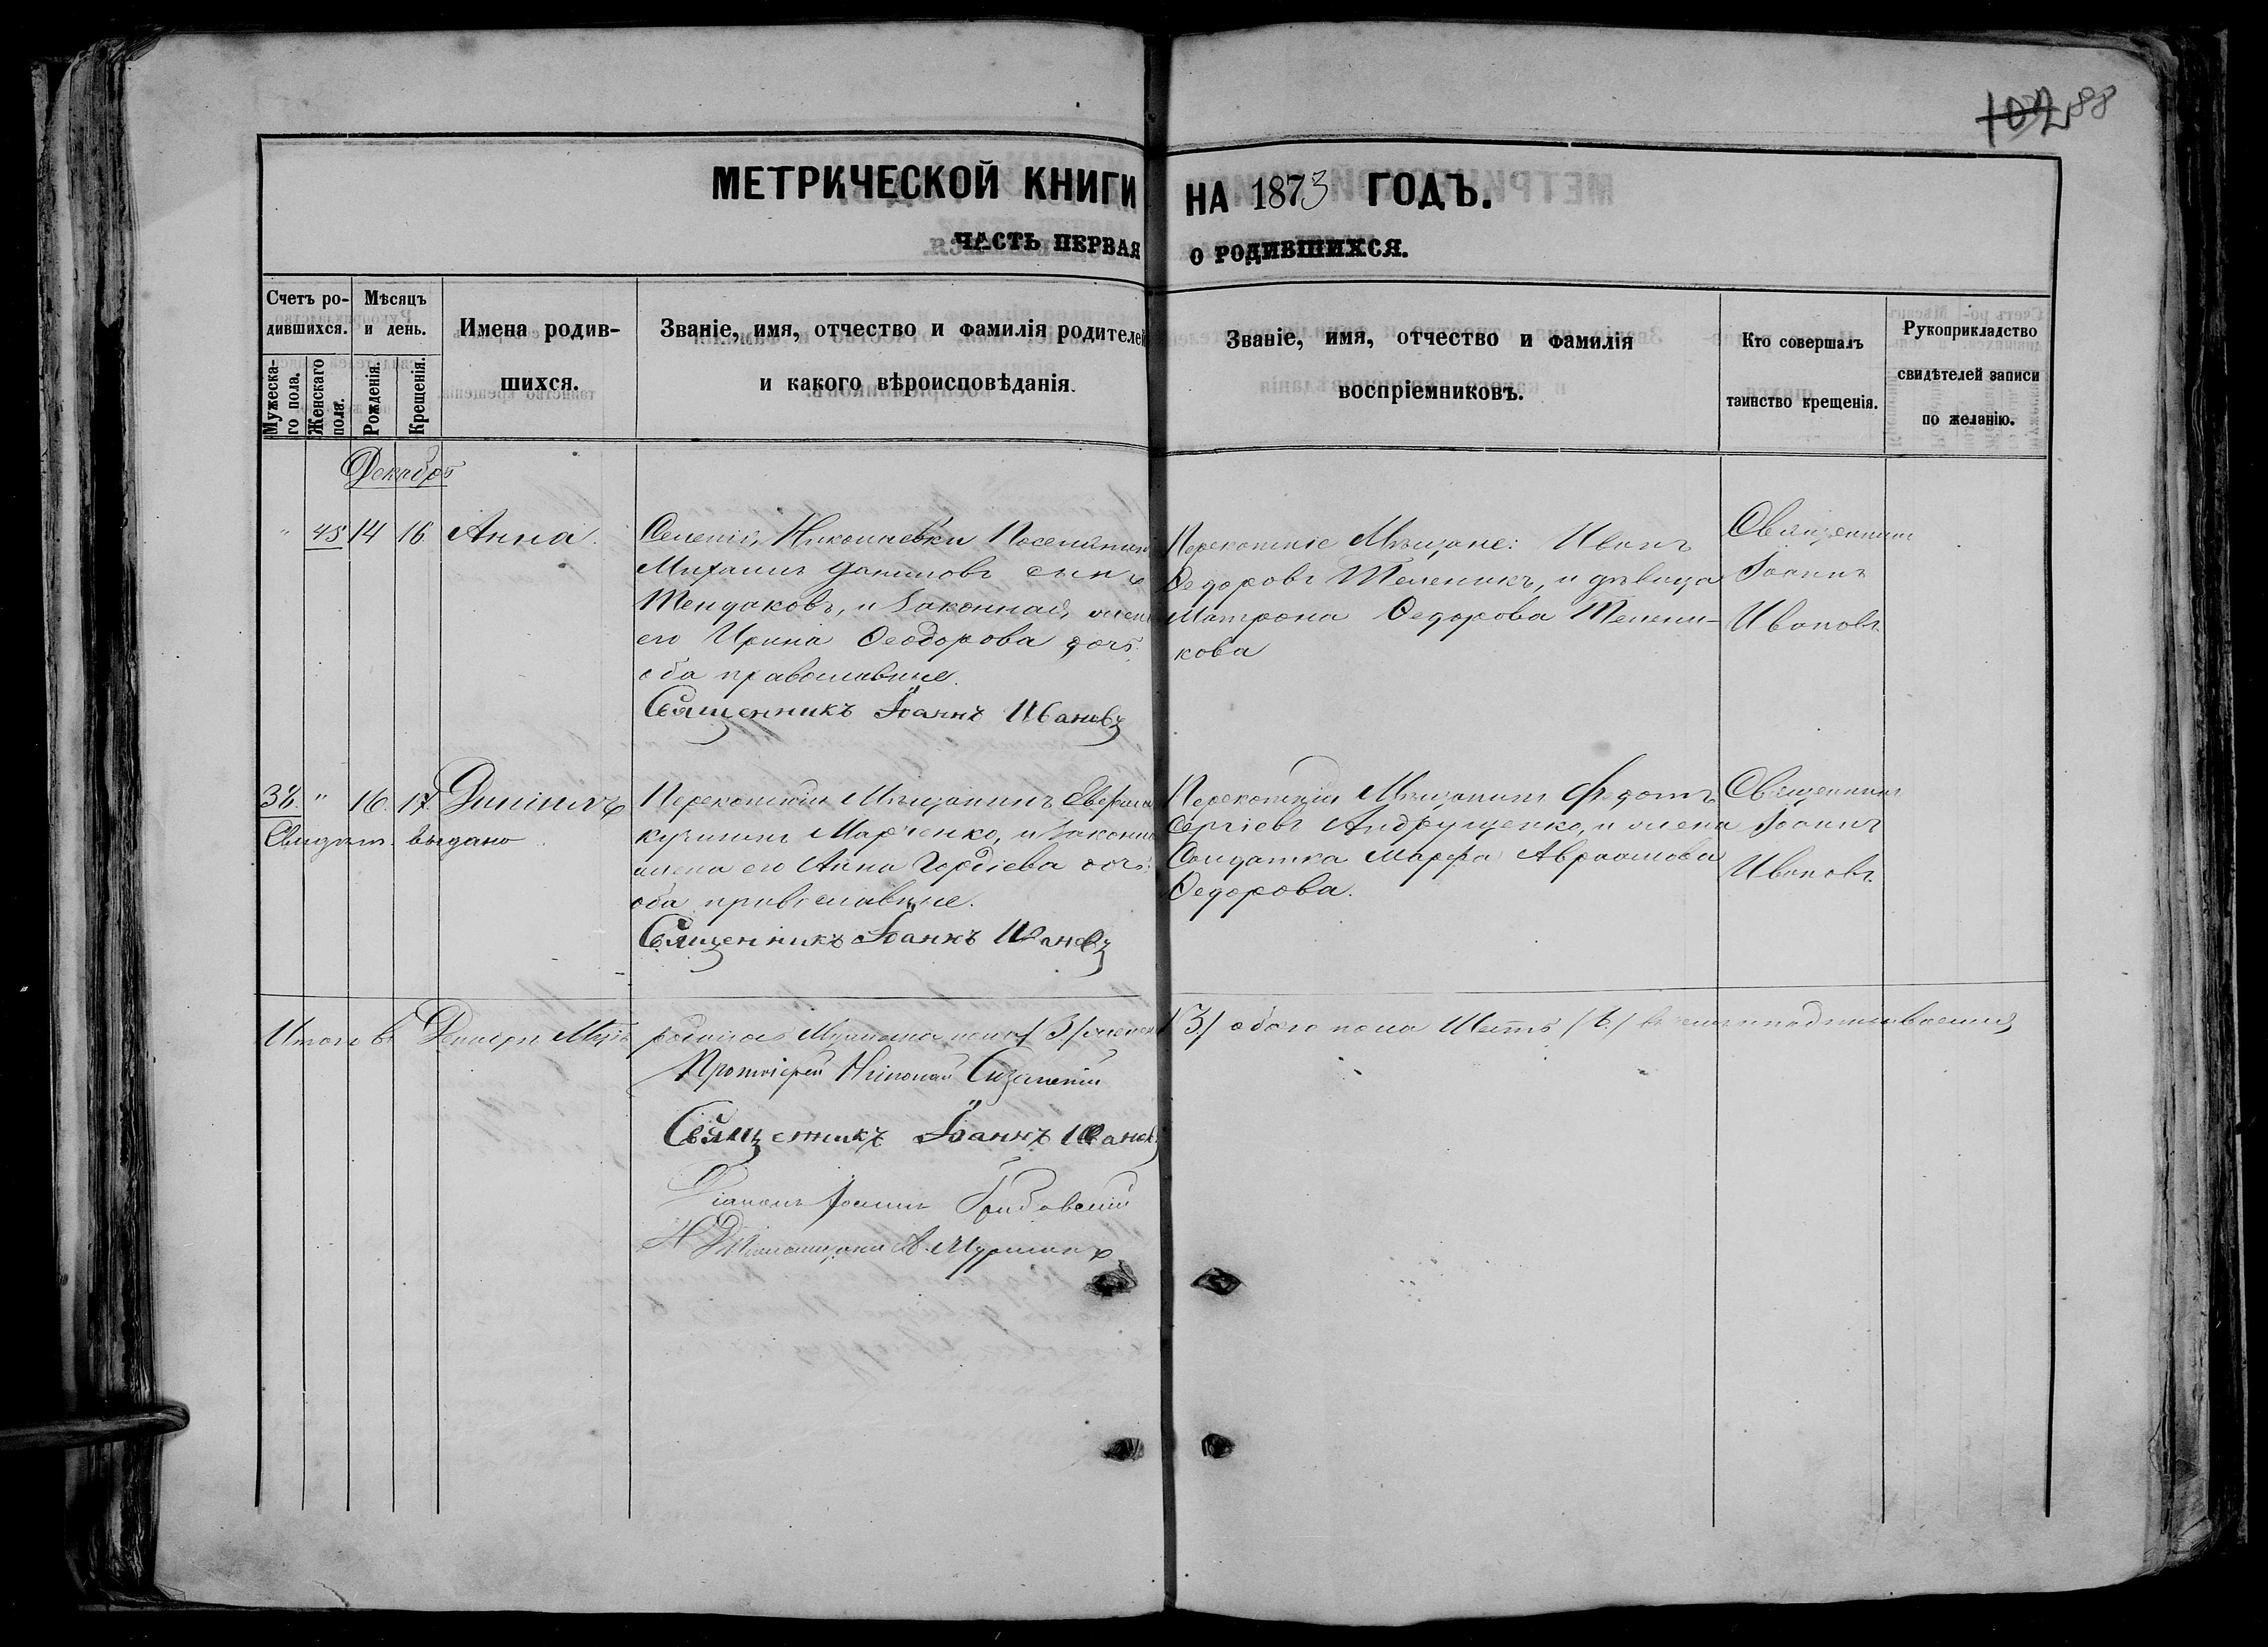 102 88
МЕТРИЧЕСКОЙ КНИГИ НА 1873 ГОДЪ.
ЧАСТЬ ПЕРВАЯ О РОДИВШИХСЯ.
Счетъ родившихся.
Мужескаго пола.
Женскаго пола.
Мѣсяцъ и день.
Рожденія.
Крещенія.
Имена родившихся.
Званіе, имя, отчество и фамилія родителей
и какого вѣроисповѣданія.
Званіе, имя, отчество и фамилія
воспріемниковъ.
Кто совершалъ
таинство крещенія.
Рукоприкладство
свидѣтелей записи
по желанію.
Декабрь
" 45 14 16 Анна.
Селенія Николаевки Поселянинъ
Михаилъ Даниловъ сынъ
Тендаковъ, и законная жена
его Ирина Феодорова дочь
оба православные.
Священникъ Іоаннъ Ивановъ
Перекопскіе Мѣщане: Иванъ
Федоровъ Теленикъ, и дѣвица
Матрона Федорова Телени-
кова
Священникъ
Іоаннъ
Ивановъ
38. " 16. 17.
Свидѣт. выдано
Перекопскій Мѣщанинъ
Марченко, и законная
жена его Анна Гордіева дочь
оба православные.
Священникъ Іоаннъ Ивановъ
Перекопскій Мѣщанинъ Федотъ
Сергіевъ Андрущенко, и жена
Солдатка Марфа Авраамова
Федорова.
Священникъ
Іоаннъ
Ивановъ
Итого въ Декабрѣ М-цѣ родилось Мужеска пола /3/ женска /3/ обоего пола Шесть /6/ въ чемъ и подписываемся
Протоіерей Николай
Священникъ Іоаннъ Ивановъ
Діаконъ Іоаннъ Грибовскій